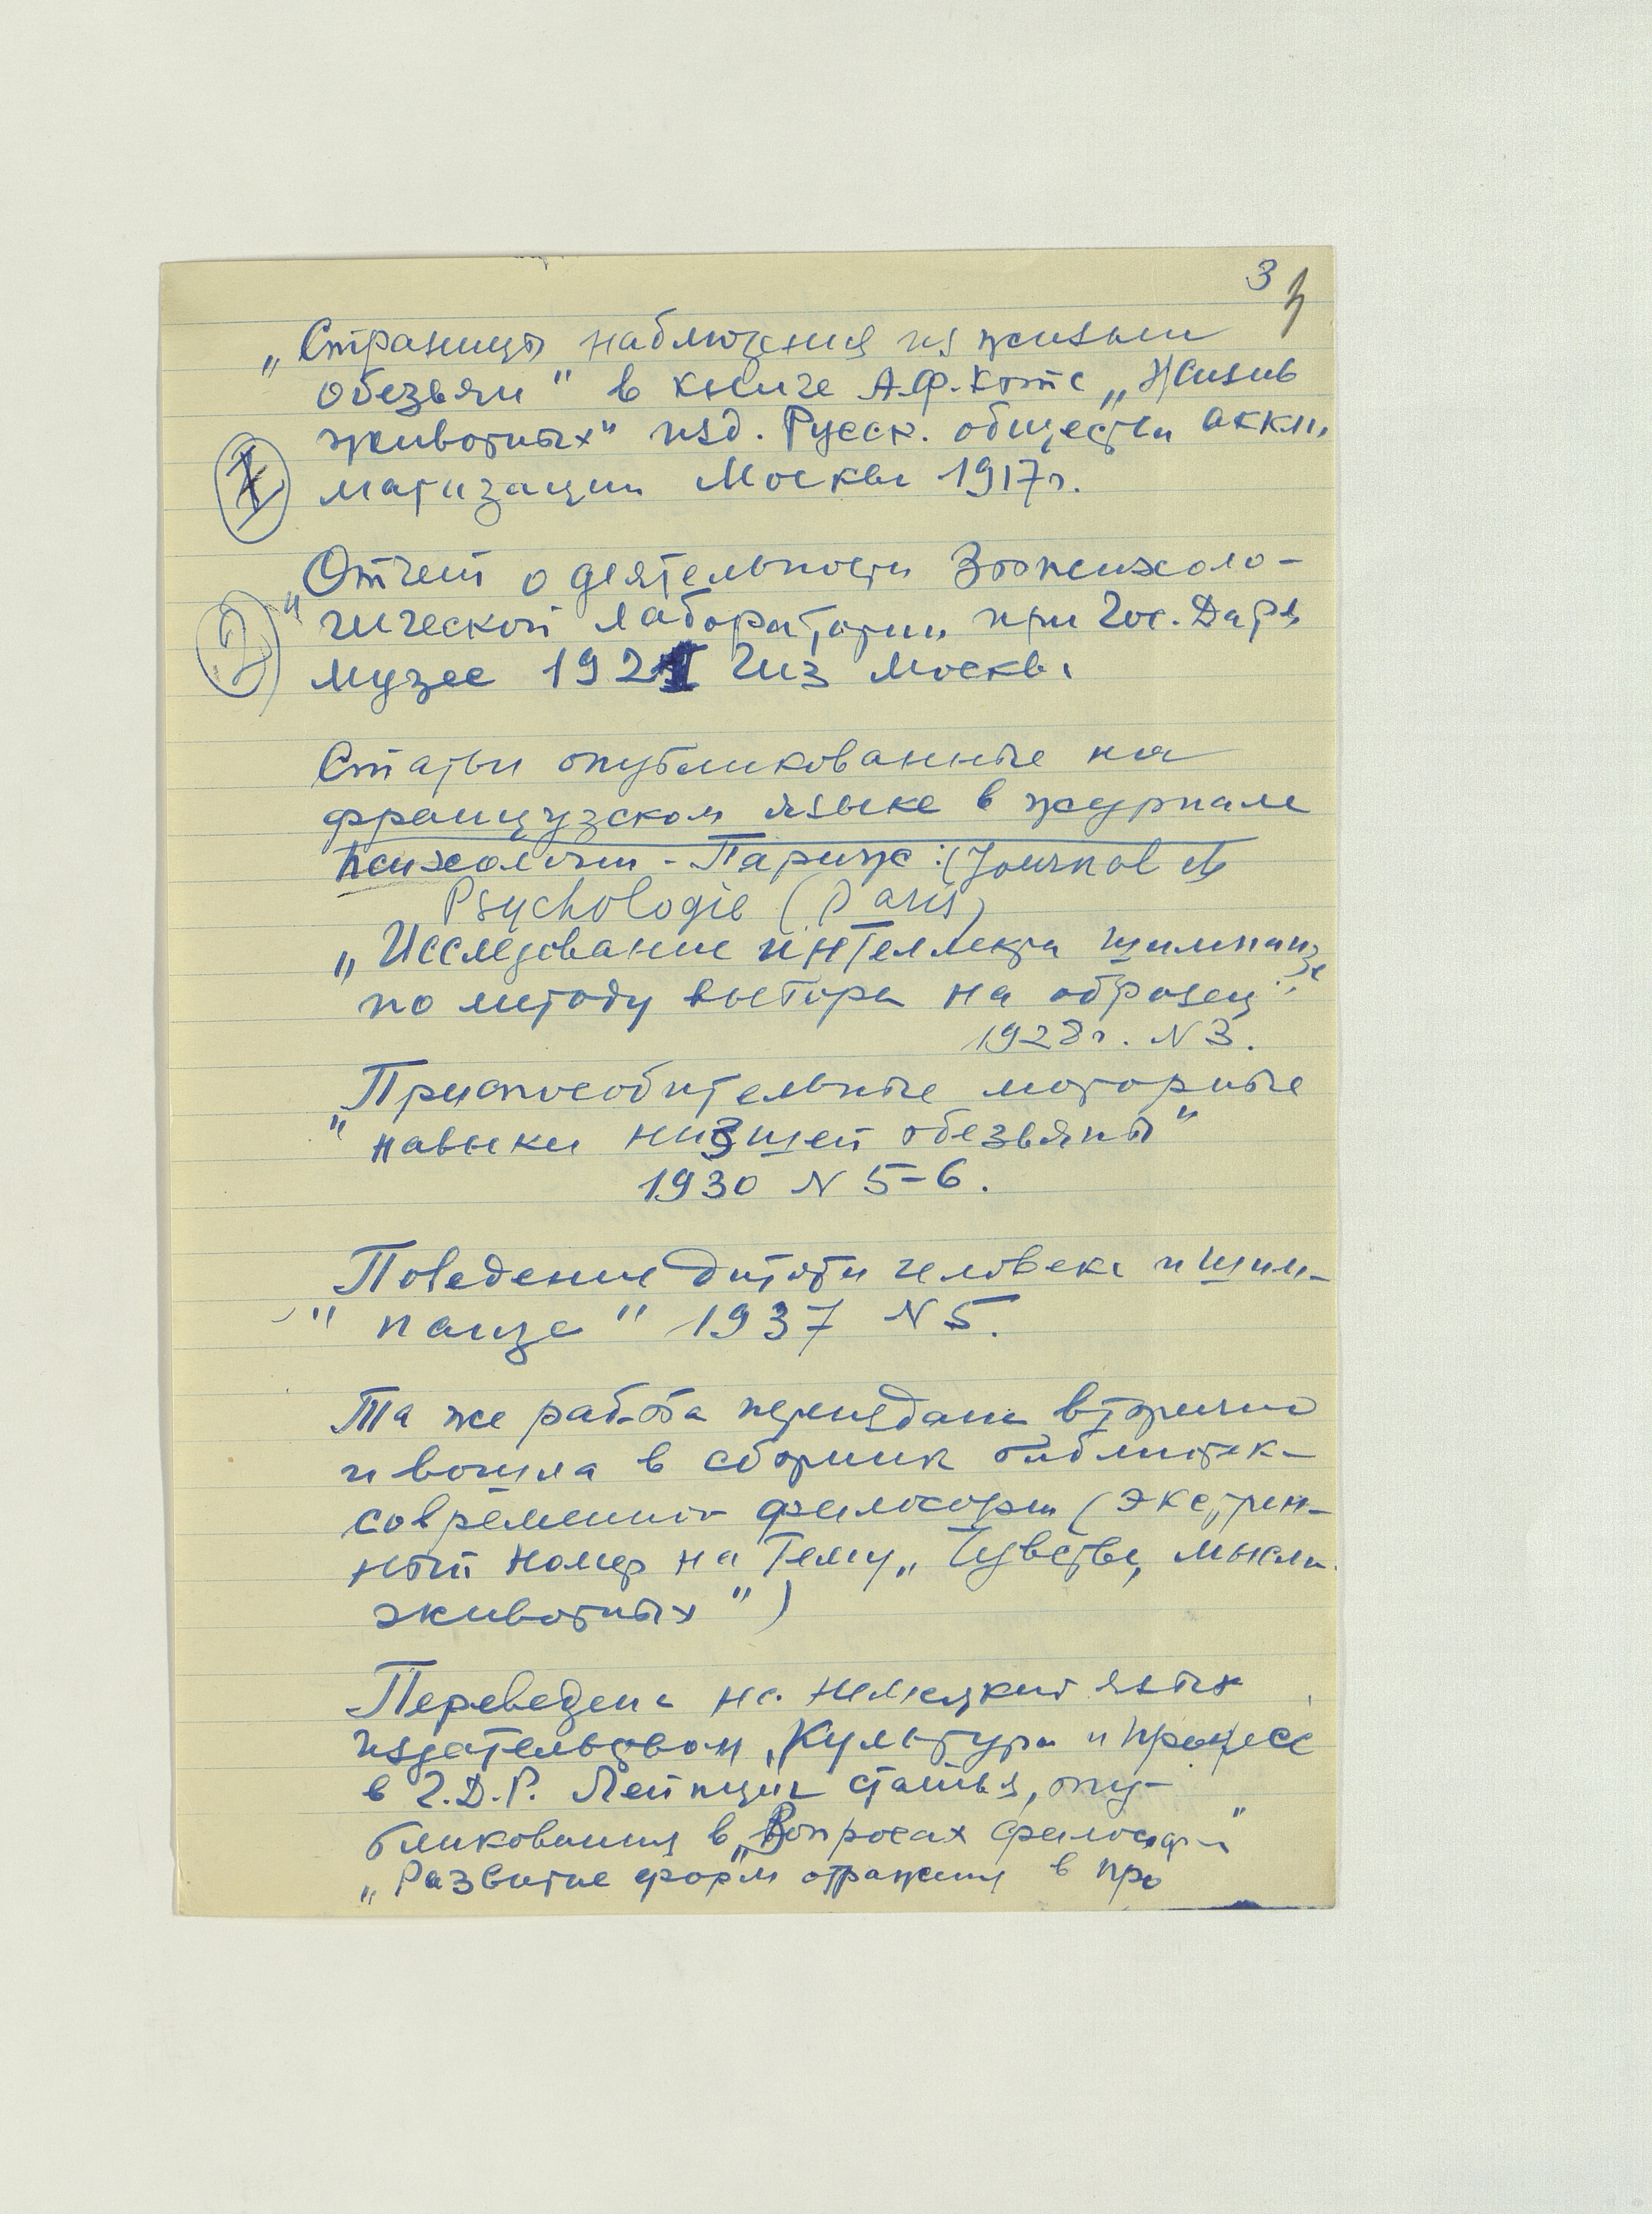 3
„Страницы наблюдения из жизни
обезьян" в книге А.Ф. Котс „Жизнь
животных" изд. Русск. общества аккли
I матизации Москва 1917 г.
„Отчет о деятельности Зоопсихоло-
2 гической лаборатории при Гос. Дарв
музее 1921 Гиз Москва
Статьи опубликованные на
французском языке в журнале
психологии - Париж: (Journal de
Psychologie (Paris)
„Исследование интеллекта шимпанзе
по методу выбора на образец"
1928 г. N 3.
„Приспособительные моторные
навыки низшей обезьяны"
1930 N 5-6.
Поведение дитяти человека и шим-
" панзе" 1937 N 5.
Та же работа переиздана вторично
и вошла в сборник библиотек
современной философии (экстрен-
ный номер на тему „Чувства, мысли
животных")
Переведена на немецкий язык
издательством „Культура и прогресс
в Г.Д.Р. Лейпциг статья, опу-
бликованная в „Вопросах философии"
„Развитие форм отражения в про